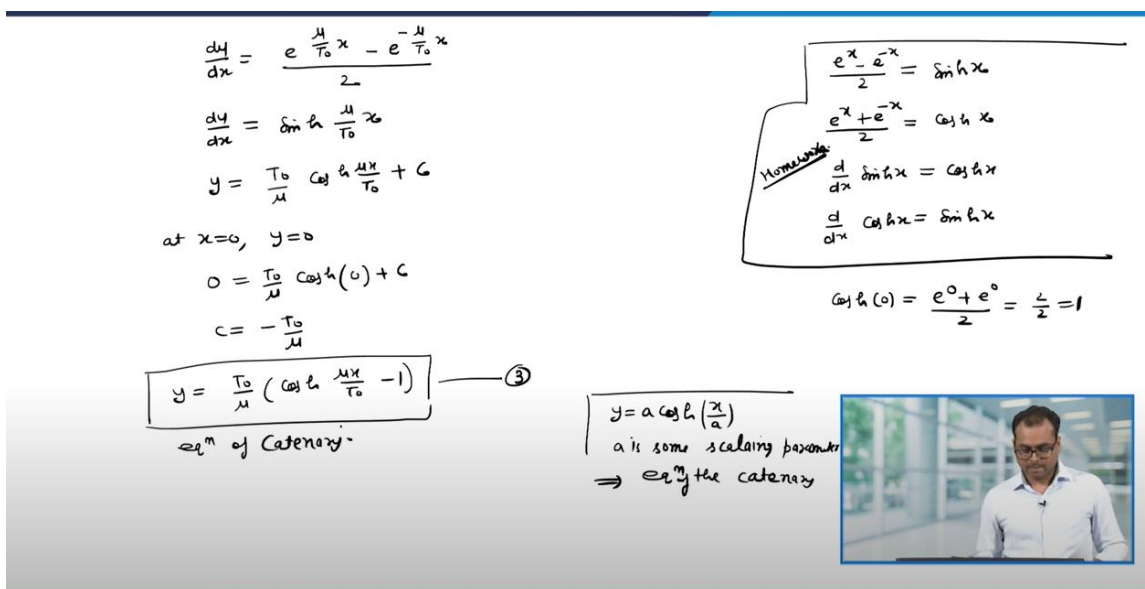 dy/dx = (e^(μ/T₀ x) - e^(-μ/T₀ x))/2
dy/dx = sinh μ/T₀ x
y = T₀/μ cosh μx/T₀ + C
at x=0, y=0
0 = T₀/μ cosh(0) + C
C = - T₀/μ
y = T₀/μ (cosh μx/T₀ - 1) ③
eqⁿ of Catenary.
(e^x - e^-x)/2 = sinhx
(e^x + e^-x)/2 = coshx
Homework
d/dx sinhx = coshx
d/dx coshx = sinhx
cosh(0) = (e⁰ + e⁰)/2 = 2/2 = 1
y = a cosh (x/a)
a is some scalaing parameter
⇒ eqⁿ of the catenary